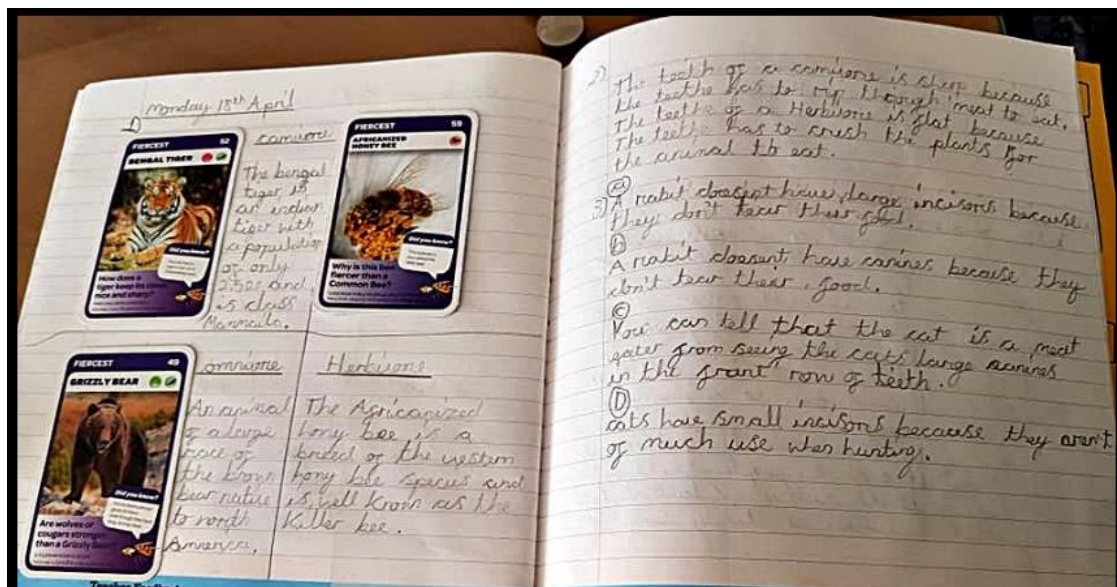 Monday 18th April
1)
FIERCEST 52
BENGAL TIGER
Did you know?
How does a
tiger keep its claws
nice and sharp?
carnivore
The bengal
tiger is
an indian
tiger with
a population
of only
2500 and
is class
Mammals.
FIERCEST 59
AFRICANIZED
HONEY BEE
Did you know?
Why is this bee
fiercer than a
Common Bee?
FIERCEST 49
GRIZZLY BEAR
Did you know?
Are wolves or
cougars stronger
than a Grizzly Bear?
omnivore
An animal
of a large
race of
the brown
bear native
to north
America.
Herbivore
The Africanized
hony bee is a
breed of the western
hony bee species and
is well known as the
Killer bee.
2)
The teeth of a carnivore is sharp because
the teethe has to rip though meat to eat.
The teethe of a Herbivore is flat because
the teethe has to crush the plants for
the animal to eat.
3) a
A rabit doesent have large incisors because
they don't tear their food.
b
A rabit doesent have canines because they
don't tear their food.
c
You can tell that the cat is a meat
eater from seeing the cats large canines
in the front row of teeth.
D
cats have small incisors because they aren't
of much use when hunting.